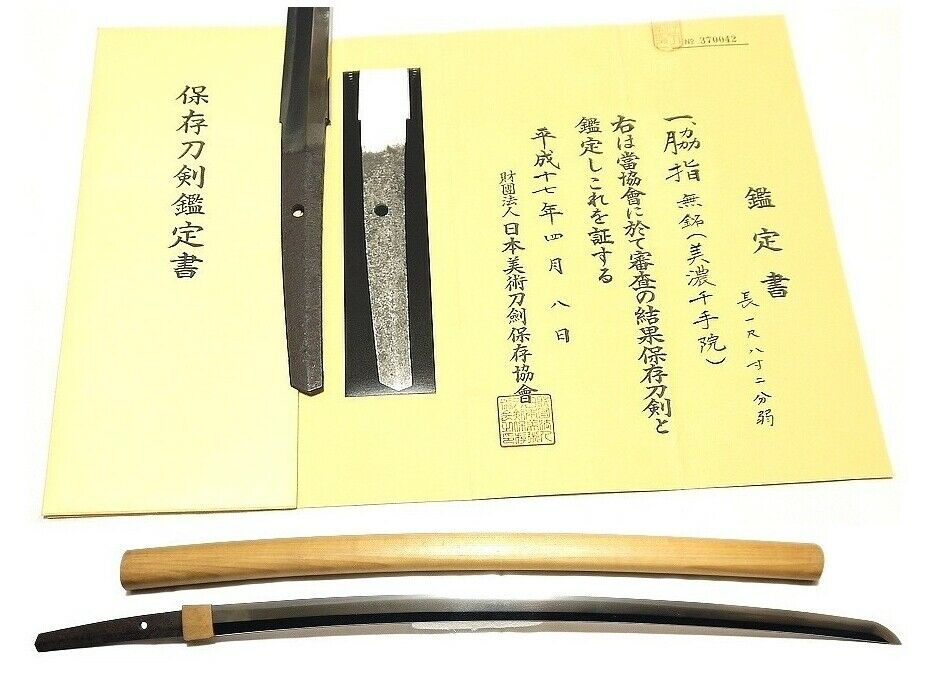 保存刀剣鑑定書
№ 370042
鑑定書
長一尺八寸二分弱
一、脇指 無銘(美濃千手院)
右は當協會に於て審査の結果保存刀剣と
鑑定しこれを証する
平成十七年四月八日
財團法人日本美術刀劍保存協會